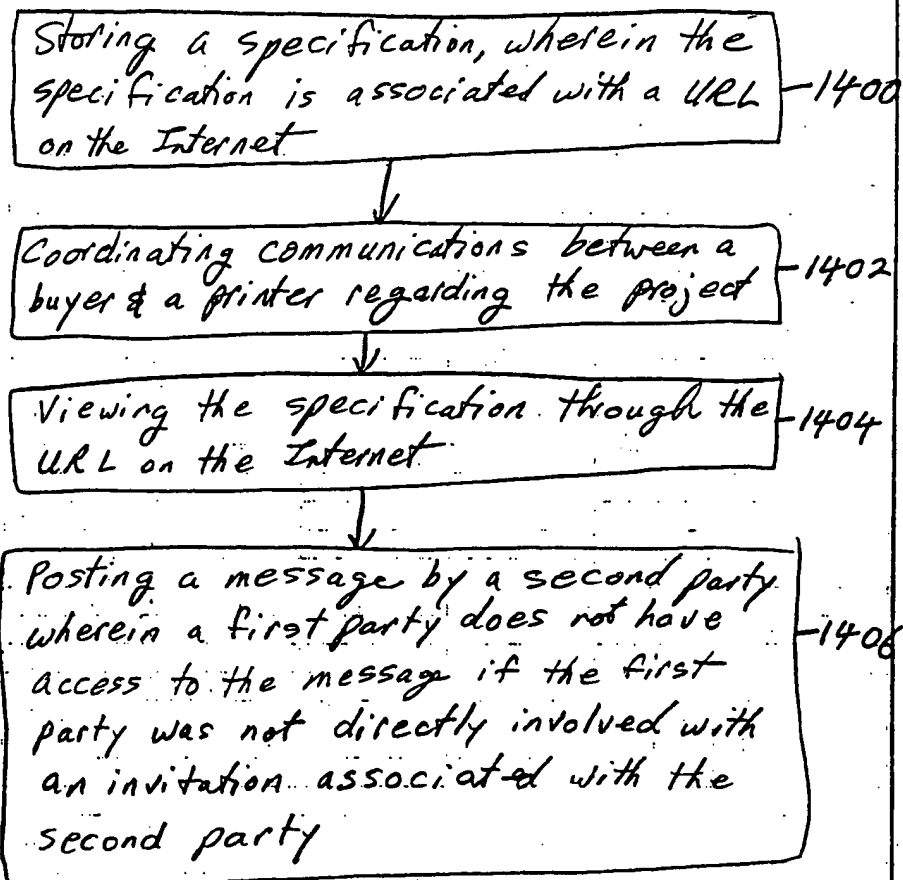 Storing a specification, wherein the
specification is associated with a URL
on the Internet
1400
Coordinating communications between a
buyer & a printer regarding the project
1402
Viewing the specification through the
URL on the Internet
1404
Posting a message by a second party
wherein a first party does not have
access to the message if the first
party was not directly involved with
an invitation associated with the
second party
1406